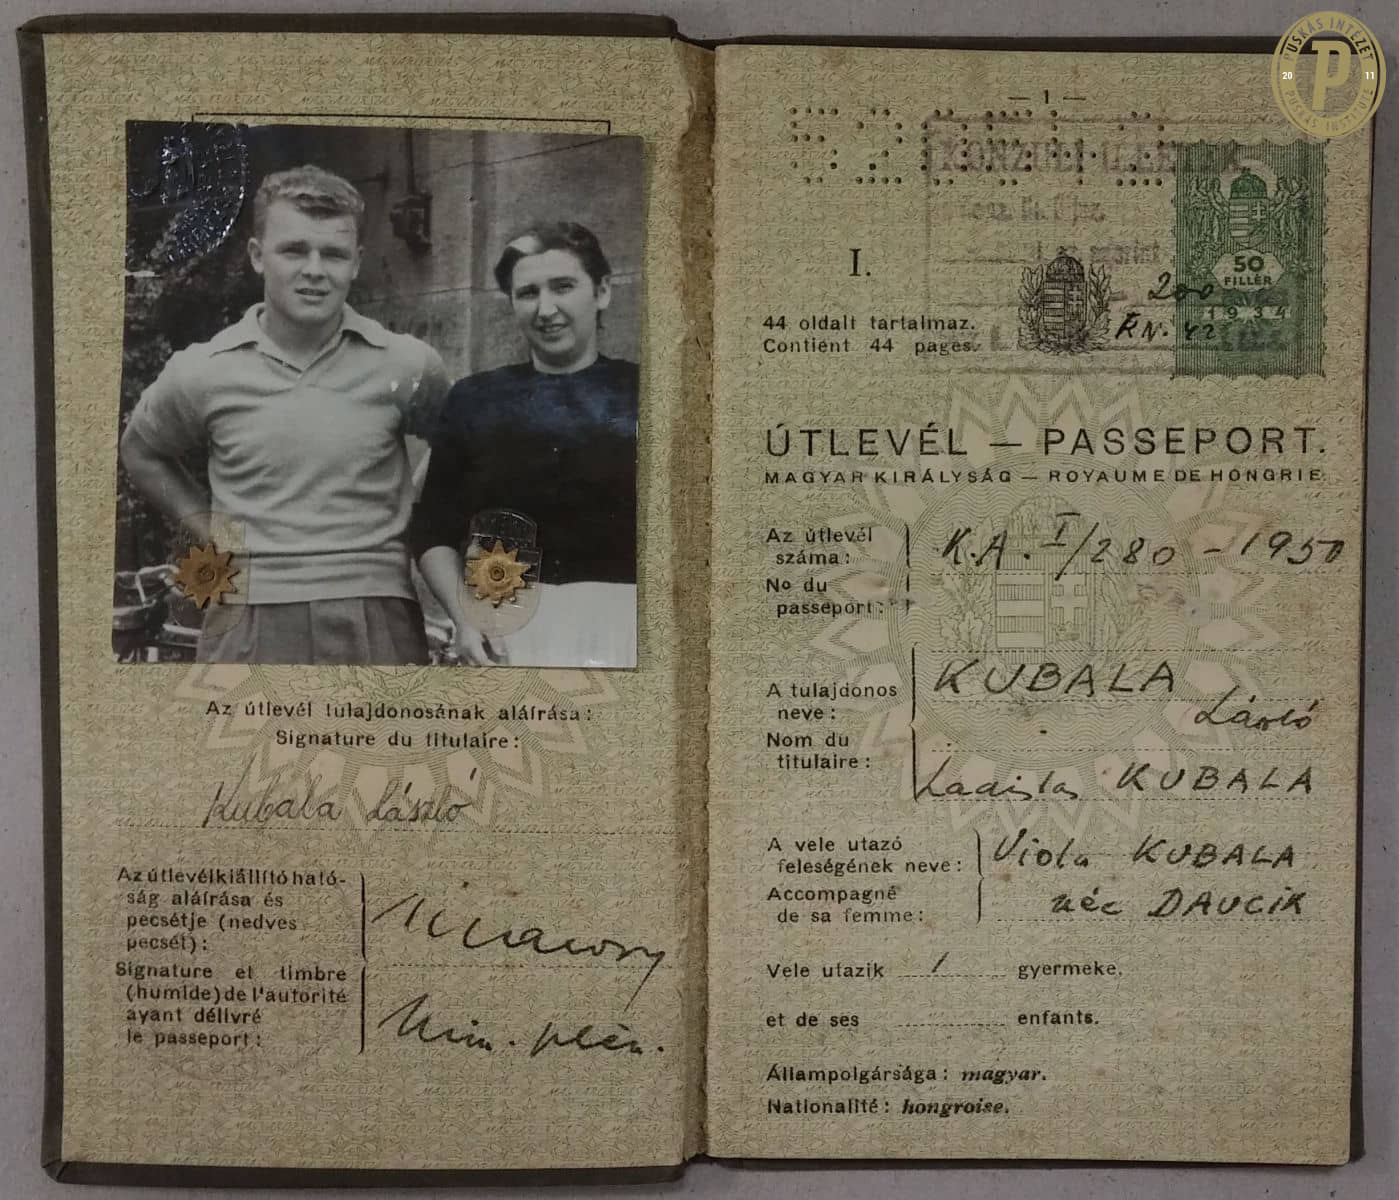 Az útlevél tulajdonosának aláírása:
Signature du titulaire:
Kubala László
Az útlevélkiállító ható-
ság aláírása és
pecsétje (nedves
pecsét):
Signature et timbre
(humide) de l'autorité
ayant délivré
le passeport:
Min. plén.
PUSKÁS INTÉZET
P
20 11
PUSKÁS INSTITUTE
— 1 —
I.
50
FILLÉR
1934
200
44 oldalt tartalmaz.
Contient 44 pages.
ÚTLEVÉL — PASSEPORT.
MAGYAR KIRÁLYSÁG — ROYAUME DE HONGRIE
Az útlevél
száma:
No du
passeport:
K.A. I/280 - 1950
A tulajdonos
neve:
Nom du
titulaire:
KUBALA
László
Ladislas KUBALA
A vele utazó
feleségének neve:
Accompagné
de sa femme:
Viola KUBALA
née DAUCIK
Vele utazik 1 gyermeke.
et de ses enfants.
Állampolgársága: magyar.
Nationalité: hongroise.